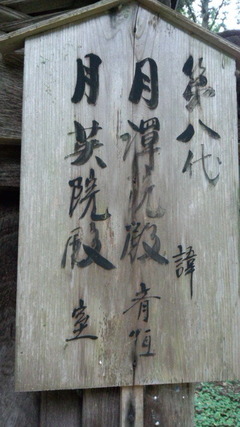 第八代 諱
月潭院殿 青恒
月英院殿 室